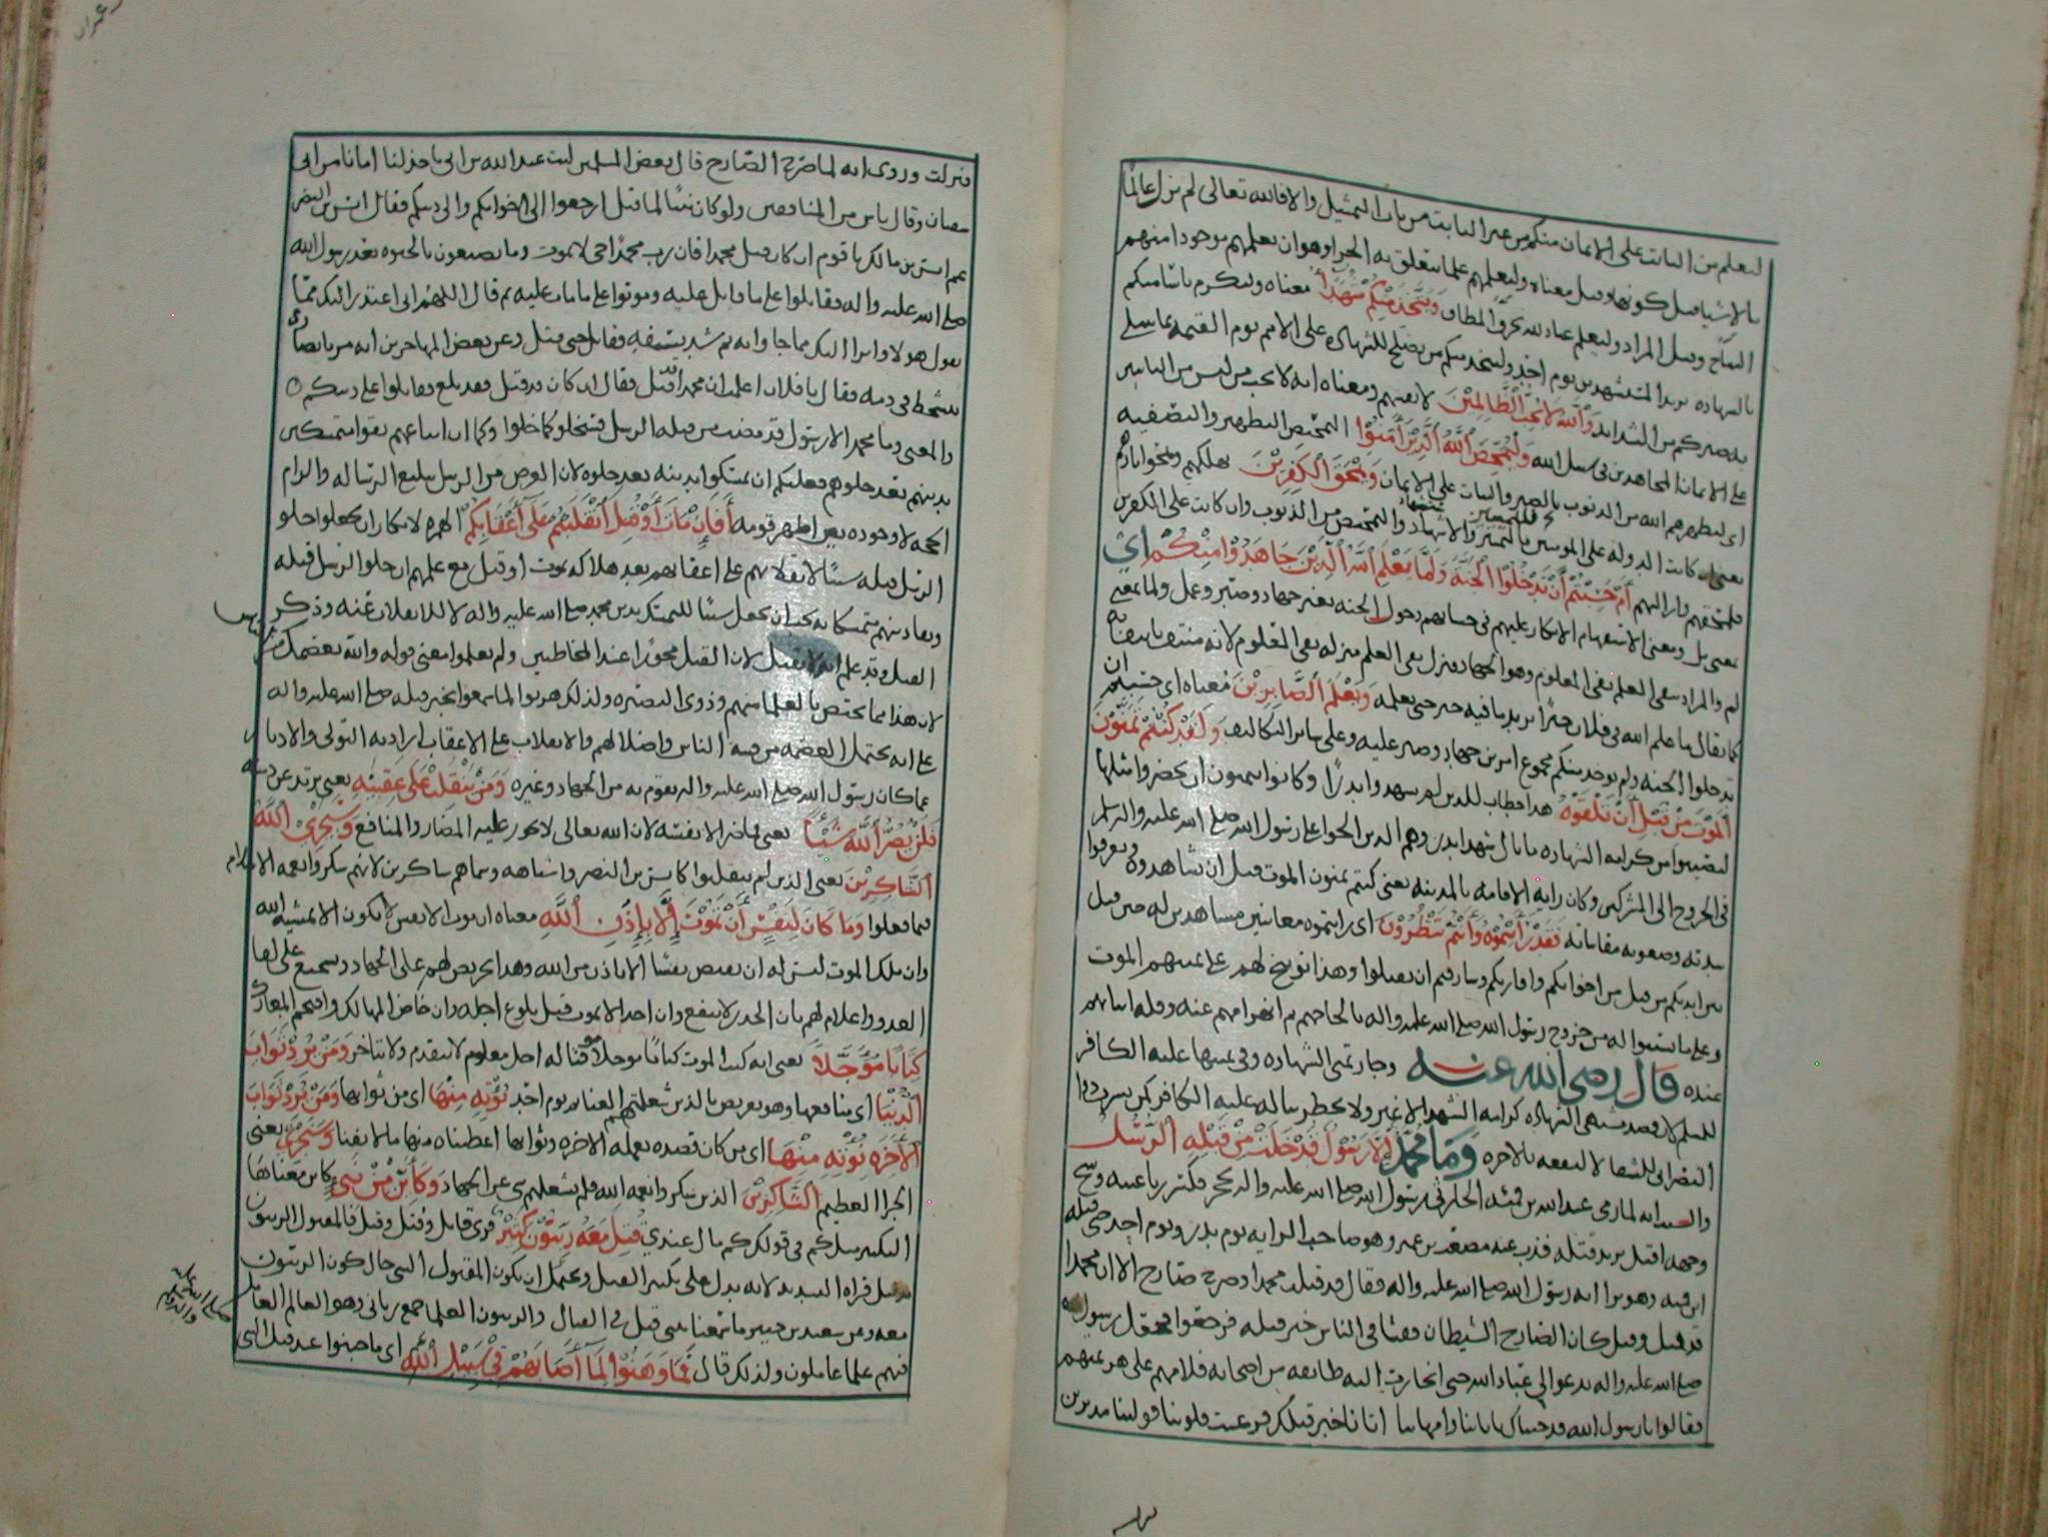 ليعلم من الثابت على الايمان منكم من غير الثابت من باب التمثيل والا فالله تعالى لم يزل عالما
بالاشيا قبل كونها وقيل معناه وليعلمهم علما يتعلق به الجزا وهو ان يعلمهم موجودا منهم
الثبات وقيل المراد وليعلم عباد لله وَيَتَّخِذَ مِنْكُمْ شُهَدَآءَ معناه وليكرم ناسا منكم
بالشهاده يريد المستشهدين يوم احد وليتخذ منكم من يصلح للشهاده على الامم يوم القيمه بما يبتلى
به صبركم من الشدايد وَاَللَّهُ لَا يُحِبُّ الظَّالِمِيْنَ لا بعضهم ومعناه انه لا يحب من ليس من الثابتين
على الايمان المجاهدين في سبيل الله وَلِيُمَحِّصَ اللَّهُ الَّذِيْنَ اٰمَنُوْا التمحيص التطهير والتصفيه
اى ليطهرهم الله من الذنوب بالصبر والثبات على الايمان وَيَمْحَقَ الْكَٰفِرِيْنَ يهلكهم
يعني ان كانت الدوله على المومنين فللتمييز والاستشهاد والتمحيص من الذنوب وان كانت على الكفرين
فلمحقهم واثارهم أَمْ حَسِبْتُمْ أَنْ تَدْخُلُوْا الْجَنَّةَ وَلَمَّا يَعْلَمِ اللَّهُ الَّذِيْنَ جَاهَدُوْا مِنْكُمْ اى
يعني بل ومعنى الاستفهام الانكار عليهم في حسابهم دخول الجنه بغير جهاد وصبر وعمل ولما بمعنى
لم والمراد بنفى العلم نفى المعلوم وهو الجهاد ونزل نفى العلم منزله نفى المعلوم لانه منتف بانتفايه
كما يقال ما علم الله في فلان خيرا يريد ما فيه خير حتى يعلمه وَيَعْلَمَ الصَّابِرِيْنَ معناه اى حسبتم ان
تدخلوا الجنه ولم يوجد منكم مجموع امرين جهاد وصبر عليه وعلى ساير التكاليف وَلَقَدْ كُنْتُمْ تَمَنَّوْنَ
الْمَوْتَ مِنْ قَبْلِ أَنْ تَلْقَوْهُ هذا خطاب للذين لم يشهدوا بدرًا وكانوا يتمنون ان يحضروا مثلها
ليصيبوا من كرامه الشهاده ما نال شهدا بدر وهم الذين الحوا على رسول الله صلى الله عليه واله وسلم
في الخروج الى المشركين وكان رايه الاقامه بالمدينه يعنى كنتم تمنون الموت قبل ان تشاهدوه وتعرفوا
شدته وصعوبه مقاساته فَقَدْ رَأَيْتُمُوْهُ وَأَنْتُمْ تَنْظُرُوْنَ اى رايتموه معاينين مشاهدين له حين قتل
بين ايديكم من قتل من اخوانكم واقاربكم وشارفتم ان تقتلوا وهذا توبيخ لهم على تمنيهم الموت
وعلى ما تسببوا له من خروج رسول الله صلى الله عليه واله بالحاحهم ثم انهزامهم عنه وقله ثباتهم
عنده قال رضى الله عنه وجاز تمنى الشهاده وفى تمنيها غلبه الكافر
للمسلم لان قصد متمنى الشهاده كرامه الشهدا لا غير ولا يخطر بباله غلبه الكافر كمن يشرب دوا
النصرانى للشفا لا لنفعه بالاخره وَمَا مُحَمَّدٌ إِلَّا رَسُوْلٌ قَدْ خَلَتْ مِنْ قَبْلِهِ الرُّسُلُ
والسبب انه لما رمى عبدالله بن قمئه الحارثى رسول الله صلى الله عليه واله بحجر فكسر رباعيته وشج
وجهه اقبل يريد قتله فذب عنه مصعب بن عمير وهو صاحب الرايه يوم بدر ويوم احد حتى قتله
ابن قمئه وهو يرا انه رسول الله صلى الله عليه واله فقال قد قتلت محمدا وصرخ صارخ الا ان محمدا
قد قتل وقيل كان الصارخ الشيطان ففشا في الناس خبر قتله فرجعوا فجعل رسول الله
صلى الله عليه واله يدعو الى عباد الله حتى انحازت اليه طايفه من اصحابه فلامهم على هربهم
فقالوا يا رسول الله فديناك بابائنا وامهاتنا اتانا خبر قتلك فرعبت قلوبنا فولينا مدبرين
فنزلت وروى انه لما صرخ الصارخ قال بعض المسلمين ليت عبد الله بن ابى ياخذ لنا امانا من ابى
سفيان وقال ناس من المنافقين ولو كان نبيًا لما قتل ارجعوا الى اخوانكم والى دينكم فقال انس بن النضر
عم انس بن مالك يا قوم ان كان قتل محمد فان رب محمدٍ حى لا يموت وما تصنعون بالحيوه بعد رسول الله
صلى الله عليه واله فقاتلوا على ما قاتل عليه وموتوا على ما مات عليه ثم قال اللهم انى اعتذر اليك مما
يقول هولا وابرا اليك مما جا وابه ثم شد بسيفه فقاتل حتى قتل وعن بعض المهاجرين انه مر بانصارى
يتشحط في دمه فقال يا فلان اعلمت ان محمدا قتل فقال ان كان قد قتل فقد بلغ فقاتلوا على دينكم ٥
والمعنى وما محمد الا رسول قد مضت من قبله الرسل فسيخلو كما خلوا وكما ان اتباعهم بقوا متمسكين
بدينهم بعد خلوهم فعليكم ان تمسكوا بدينه بعد خلوه لان الغرض من الرسل تبليغ الرساله والزام
الحجه لا وجوده بين اظهر قومه أَفَإِنْ مَاتَ أَوْ قُتِلَ اَنْقَلَبْتُمْ عَلَى أَعْقَابِكُمْ الهمزه لانكار ان يجعلوا خلو
الرسل قبله سببًا لانقلابهم على اعقابهم بعد هلاكه بموت او قتل مع علمهم ان خلو الرسل قبله
وبقا دينهم متمسكا به يجب ان يجعل سببًا للتمسك بدين محمد صلى الله عليه واله لا للانقلاب عنه وذكر
القتل وقد علم انه لا يقتل لان القتل مجوز عند المخاطبين ولم يعلموا معنى قوله والله يعصمك من الناس
لان هذا مما يختص بالعلما منهم وذوى البصيره ولذلك هربوا لما سمعوا بخبر قتله صلى الله عليه واله
على انه يحتمل العصمه من فتنه الناس واضلالهم والانقلاب على الاعقاب اراد به التولى والادبار
عما كان رسول الله صلى الله عليه واله يقوم به من الجهاد وغيره وَمَنْ يَنْقَلِبْ عَلَى عَقِبَيْهِ يعنى يرتد عن دينه
فَلَنْ يَضُرَّ اللَّهَ شَيْئًا يعنى فما ضر الا نفسه لان الله تعالى لا يجوز عليه المضار والمنافع وَسَيَجْزِيْ اللَّهُ
الشَّاكِرِيْنَ يعنى الذين لم ينقلبوا كانس بن النضر واشباهه وسماهم شاكرين لانهم شكروا نعمه الاسلام
فيما فعلوا وَمَا كَانَ لِنَفْسٍ أَنْ تَمُوْتَ إِلَّا بِإِذْنِ اللَّهِ معناه ان موت الانفس لا يكون الا بمشيه الله
وان ملك الموت ليس له ان يقبض نفسًا الا باذن من الله وهذا تحريض لهم على الجهاد وتشجيع على لقا
العدو واعلام لهم بان الحذر لا ينفع وان احدا لا يموت قبل بلوغ اجله وان خاض المهالك واقتحم المعارك
كِتَابًا مُؤَجَّلًا يعنى انه كتب الموت كتابًا موجلًا موقتا له اجل معلوم لا يتقدم ولا يتاخر وَمَنْ يُرِدْ ثَوَابَ
الدُّنْيَا اى منافعها وهو تعريض بالذين شغلتهم الغنايم يوم احد نُؤْتِهِ مِنْهَا اى من ثوابها وَمَنْ يُرِدْ ثَوَابَ
الْأٰخِرَهِ نُؤْتِهِ مِنْهَا اى من كان قصده بعمله الاخره وثوابها اعطيناه منها ما لا يفنا وَسَنَجْزِيْ يعنى
الجزا العظيم الشَّاكِرِيْنَ الذين شكروا نعمه الله فلم يشغلهم شى عن الجهاد وَكَأَيِّنْ مِنْ نَبِيٍّ كاين معناها
التكثير مثل كم في قولك كم مال عندى قُتِلَ مَعَهُ رِبِّيُّوْنَ كَثِيْرٌ قرى قاتل وقتل وقتل فالمقتول الربيون
بدليل قراه التشديد لانه يدل على تكثير القتل ويحتمل ان يكون المقتول النبى حال كون الربيون
معه وعن سعيد بن جبير ما سمعنا بنبى قتل في القتال والربيون العلما جمع ربانى وهو العالم العامل
فهم علما عاملون ولذلك قال فَمَا وَهَنُوْا لِمَا أَصَابَهُمْ فِيْ سَبِيْلِ اللَّهِ اى ما جبنوا عند قتل النبى
صلى الله عليه واله وسلم